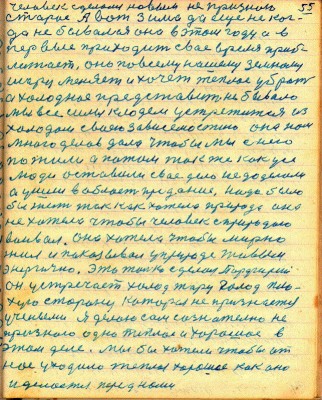 55
человек сделаем новым не призного
старае А вот Зима да еще не ког-
да не бывался она в этом году а в
первые приходит свае время приб-
лижает, оно по всему нашему Земному
шару меняет и хочет теплое убрат
а холодное представит не бывало
мы все силу кладем устретится из
холодом своею зависемостию она нам
много делов дала чтобы мы с него
пожили а патом так же как усе
люди оставили свае дело недоделом
а ушли в область предание, Надо было
бы жит так как хотела природа она
не хотела чтобы человек с природою
воивал. Она хотела чтобы мирно
жил и показывал у природе живым
энергично. Это только сделал Парфирий
он устречает холод таку Холод пло-
хую сторону Которая не признается
учеными Я делаю сам сознательно не
признаю одно теплое и хорошое в
этом деле. Мы бы хотели чтобы от
нас уходило теплое хорошое как оно
и делается перед нами